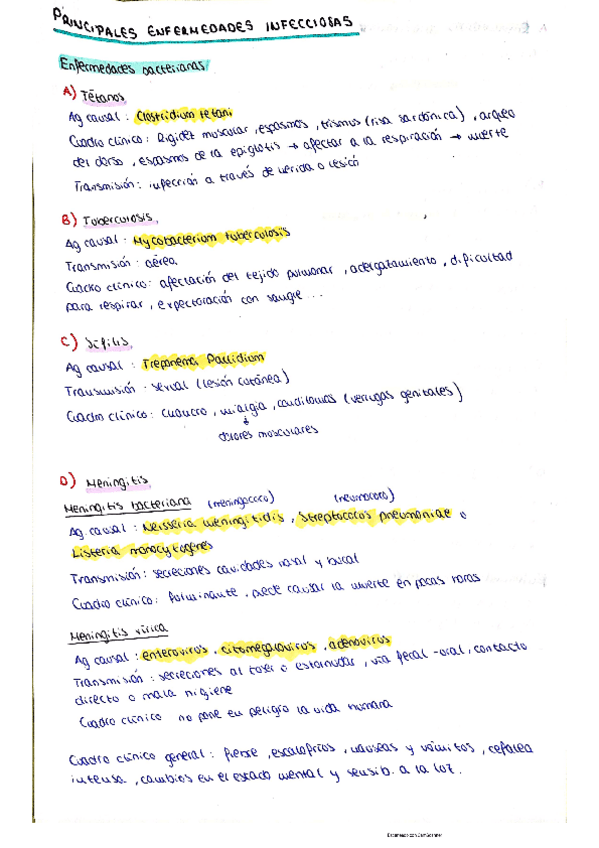 PRINCIPALES ENFERMEDADES INFECCIOSAS
Enfermedades bacterianas
A) Tétanos
Ag causal : Clostridium tetani
Cuadro clínico : Rigidez muscular, espasmos, trismos (risa sardónica), arqueo
del dorso, espasmos de la epiglotis → afectar a la respiración → muerte
Transmisión : infección a través de herida o lesión
B) Tuberculosis
Ag causal · Mycobacterium tuberculosis
Transmisión · aérea
Cuadro clínico : afectación del tejido pulmonar, adelgazamiento, dificultad
para respirar, expectoración con sangre ...
C) Sífilis
Ag causal : Treponema Pallidium
Transmisión · sexual (lesión cutánea)
Cuadro clínico : chancro, mialgia, condilomas (verrugas genitales)
↓
dolores musculares
D) Meningitis
Meningitis bacteriana (meningococo) (neumococo)
Ag causal : Neisseria meningitidis, Streptococos pneumoniae o
Listeria monocytogenes
Transmisión : secreciones cavidades nasal y bucal
Cuadro clínico : fulminante, puede causar la muerte en pocas horas
Meningitis vírica
Ag causal : enterovirus, citomegalovirus, adenovirus
Transmisión : secreciones al toser o estornudar, vía fecal-oral, contacto
directo o mala higiene
Cuadro clínico no pone en peligro la vida humana
Cuadro clínico general : fiebre, escalofríos, náuseas y vómitos, cefalea
intensa, cambios en el estado mental y sensib. a la luz.
Escaneado con CamScanner